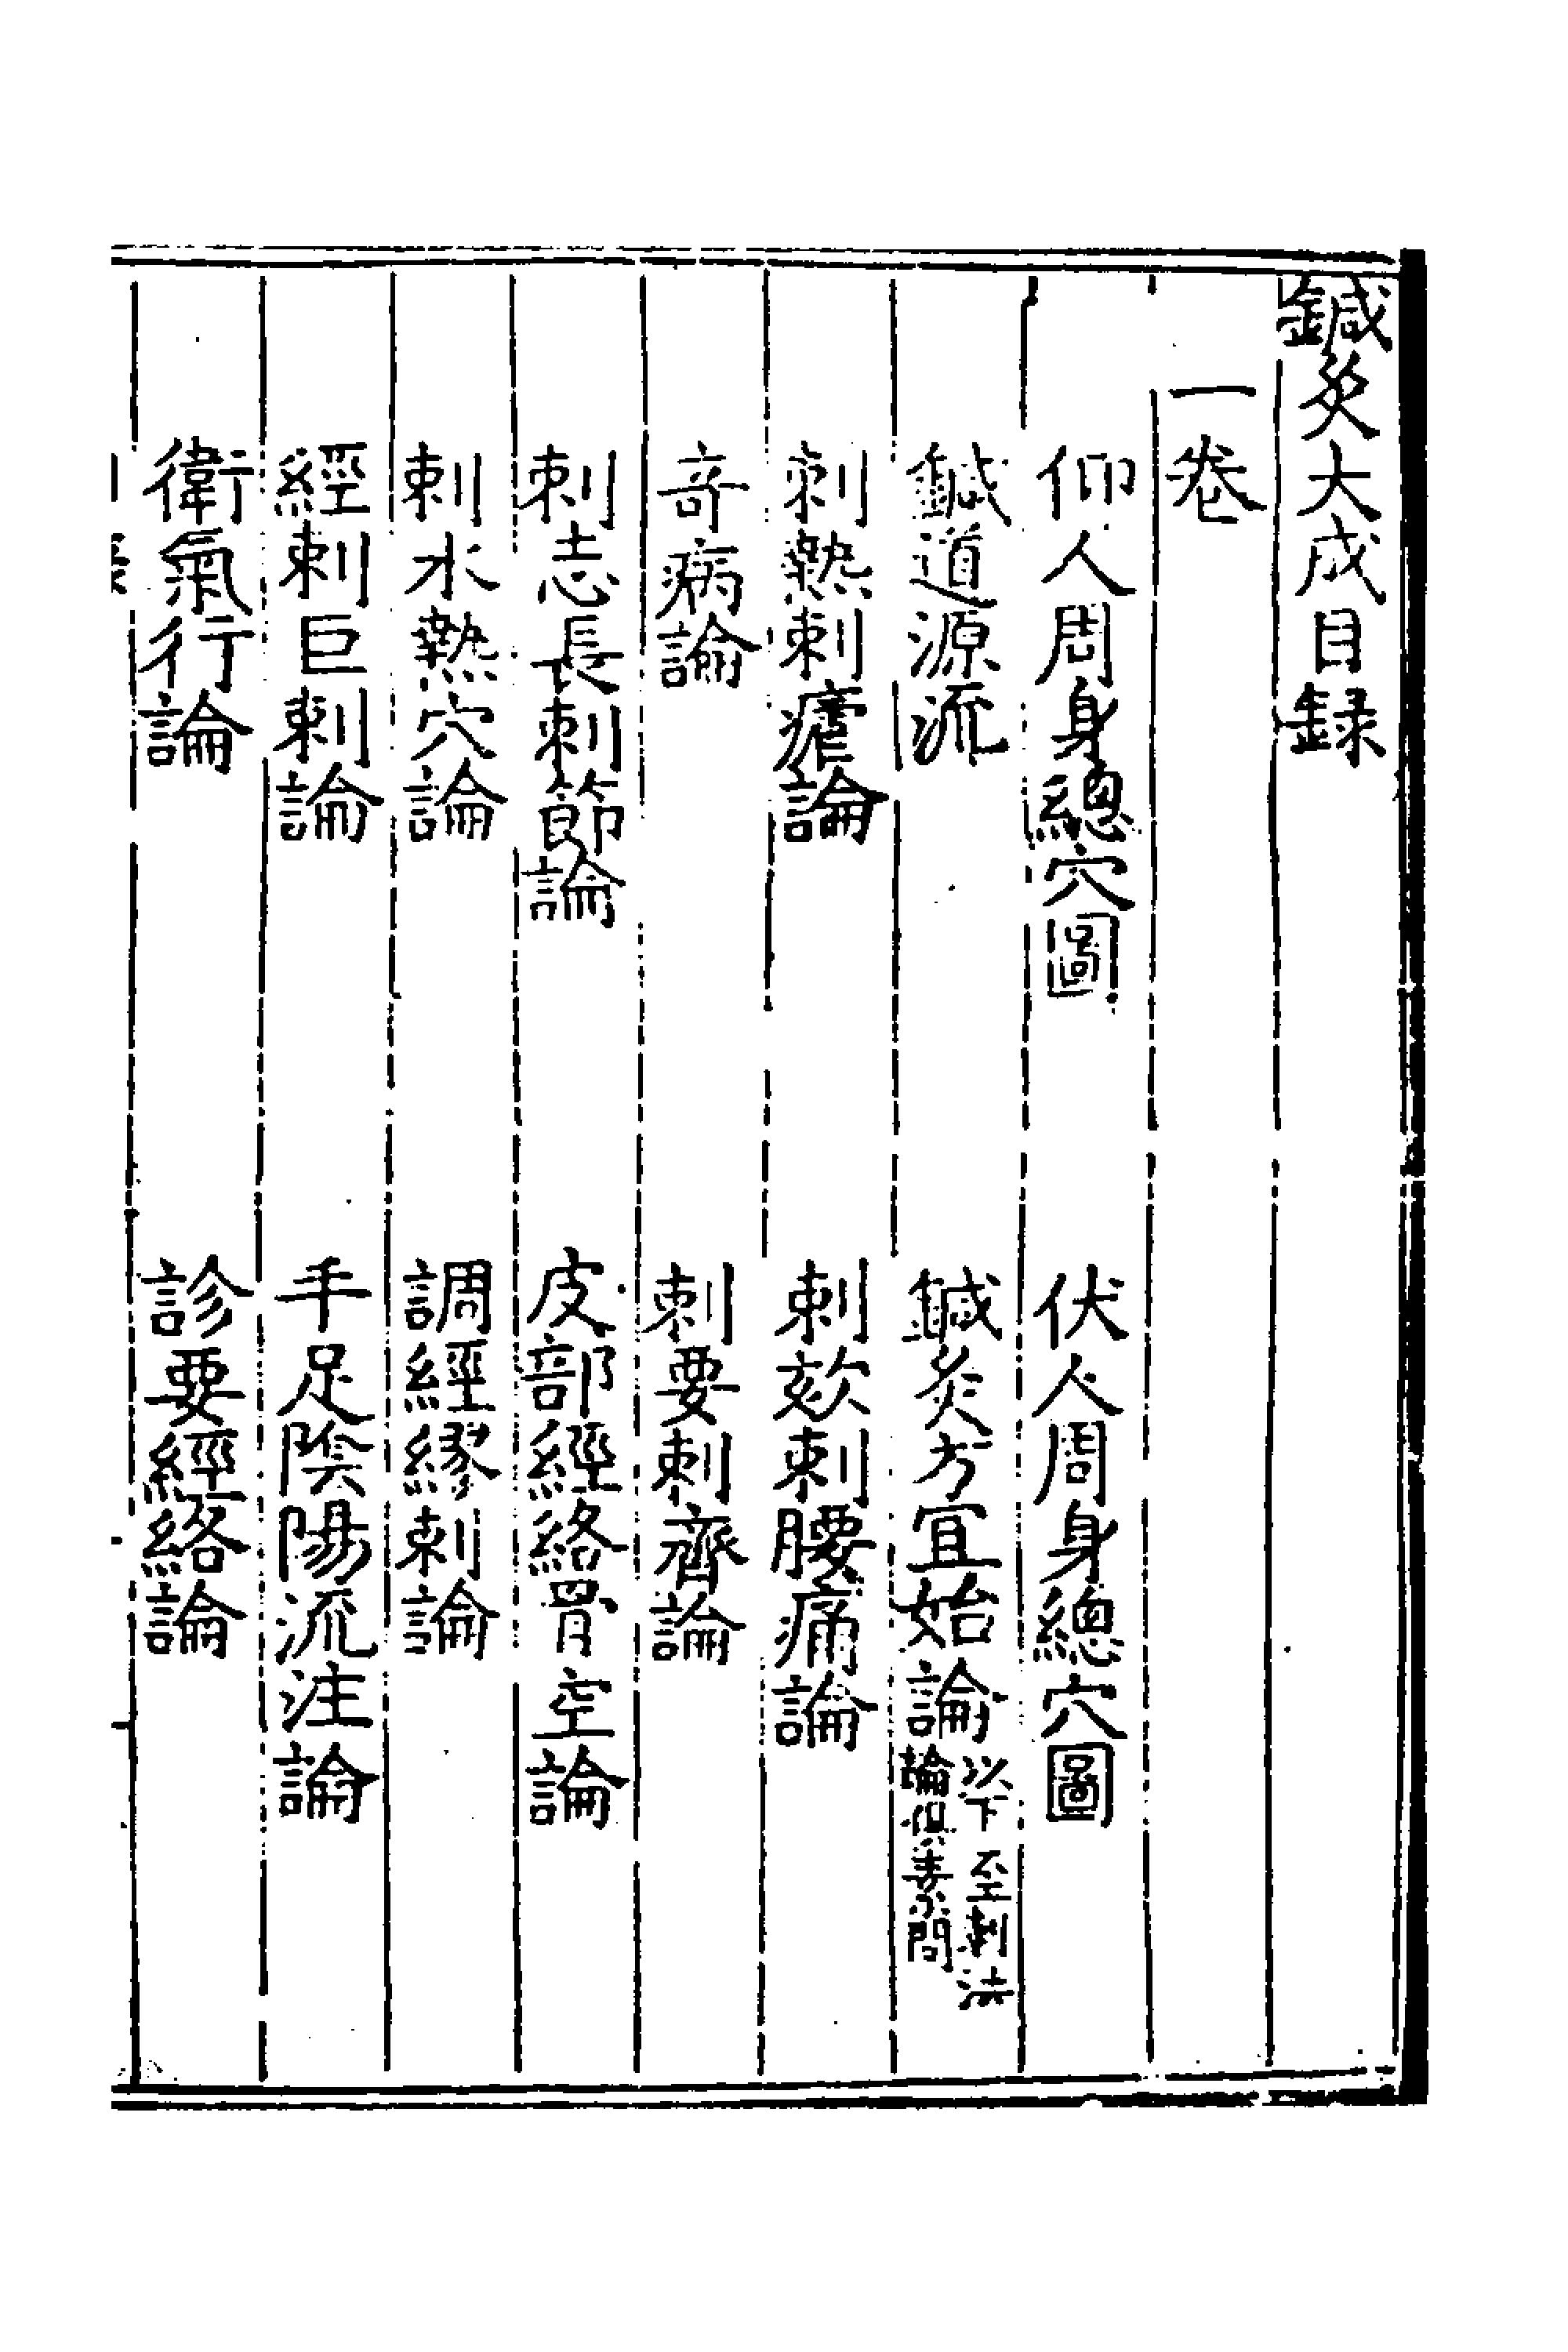 鍼灸大成目録
一卷
仰人周身總穴圖　伏人周身總穴圖
鍼道源流　鍼灸方宜始論以下至刺法論俱素問
刺熱刺瘧論　刺欬刺腰痛論
奇病論　刺要刺齊論
刺志長刺節論　皮部經絡骨空論
刺水熱穴論　調經繆刺論
經刺巨刺論　手足陰陽流注論
衛氣行論　診要經絡論